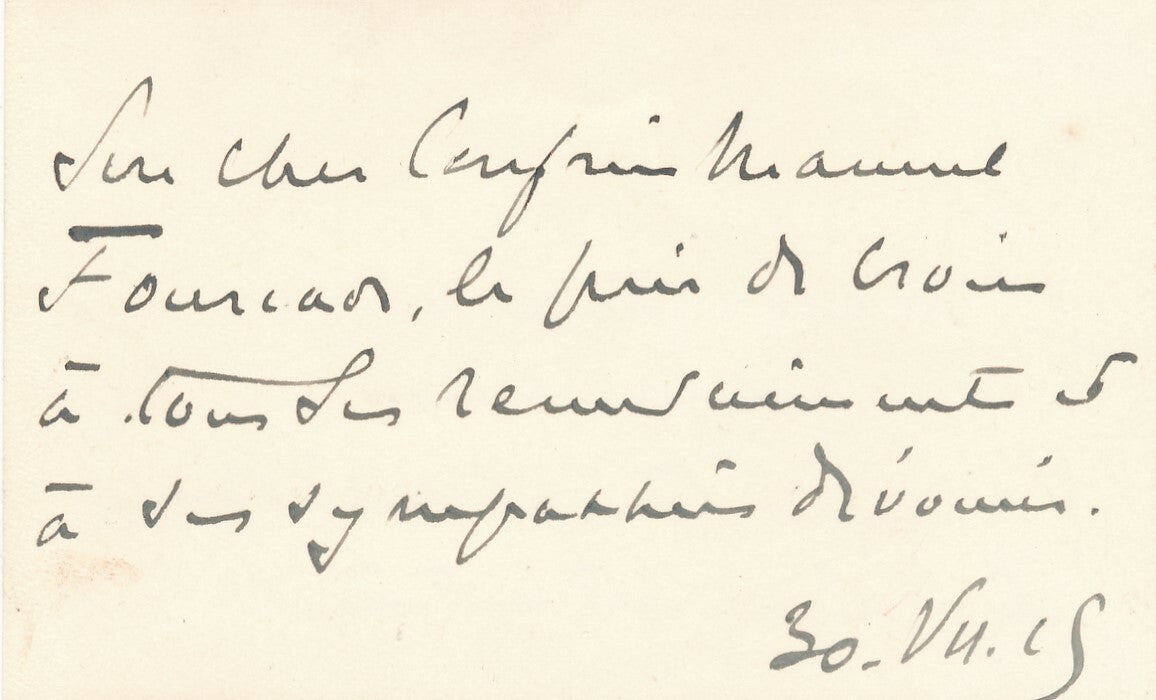 Son cher Confrère Manuel
Fourcade, le prie de croire
à tous ses remerciements et
à ses sympathies dévouées.
30. VII.